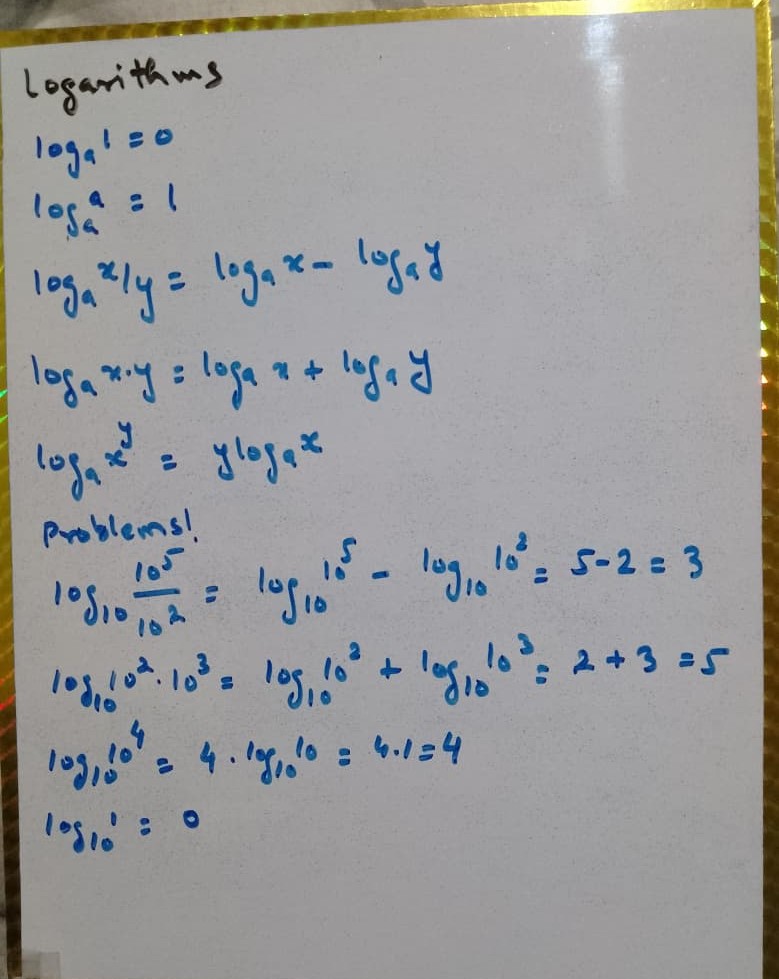 Logarithms
logₐ1 = 0
logₐa = 1
logₐx/y = logₐx - logₐy
logₐx·y = logₐx + logₐy
logₐx^y = ylogₐx
Problems!
log₁₀ 10⁵/10² = log₁₀10⁵ - log₁₀10² = 5-2 = 3
log₁₀10²·10³ = log₁₀10² + log₁₀10³ = 2+3 = 5
log₁₀10⁴ = 4·log₁₀10 = 4·1 = 4
log₁₀1 = 0